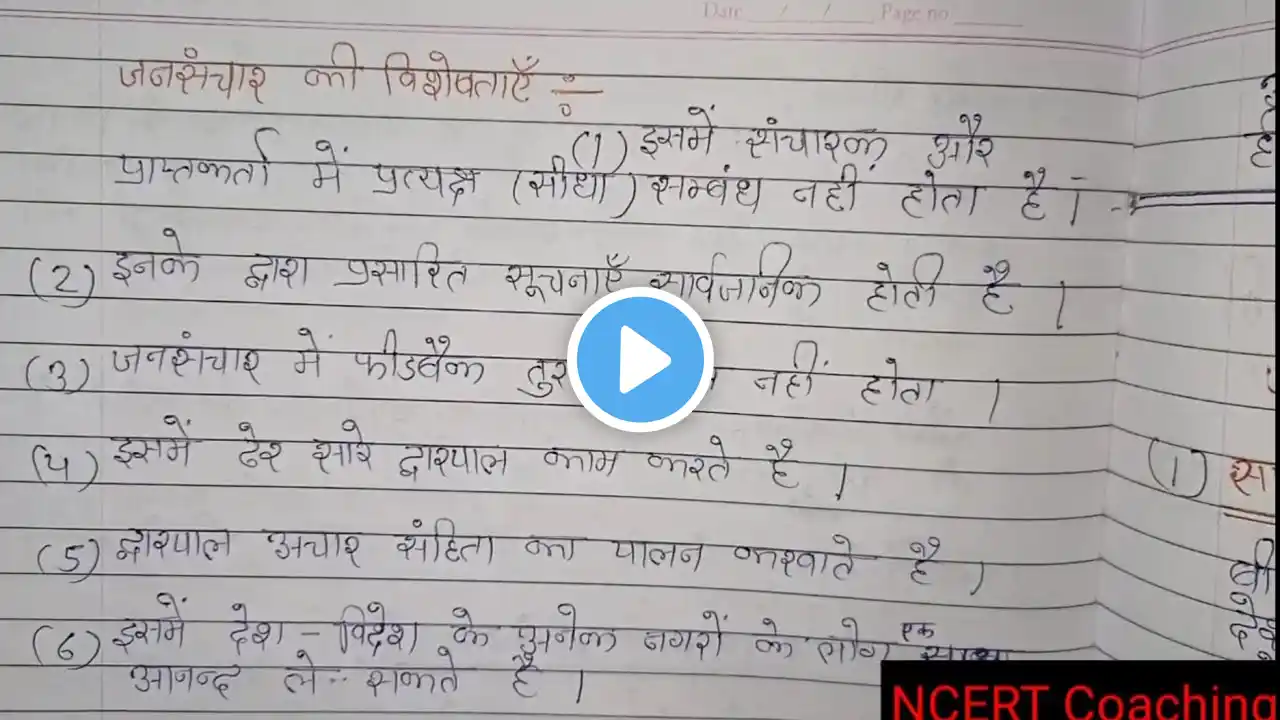 Date / / Page no
जनसंचार की विशेषताएँ ÷
(1) इसमें संचारक और
प्राप्तकर्ता में प्रत्यक्ष (सीधा) सम्बंध नहीं होता है।
(2) इनके द्वारा प्रसारित सूचनाएँ सार्वजानिक होती है।
(3) जनसंचार में फीडबैक नहीं होता।
(4) इसमें ढेर सारे द्वारपाल काम करते है।
(5) द्वारपाल अचार संहिता का पालन करवाते है।
(6) इसमें देश - विदेश के अनेक नगरों के लोग एक साथ
आनन्द ले सकते है।
(1)
NCERT Coaching